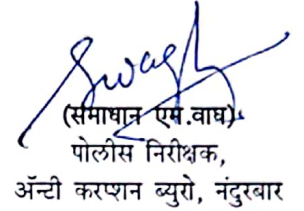 (समाधान एम.वाघ)
पोलीस निरीक्षक,
ॲन्टी करप्शन ब्युरो, नंदुरबार